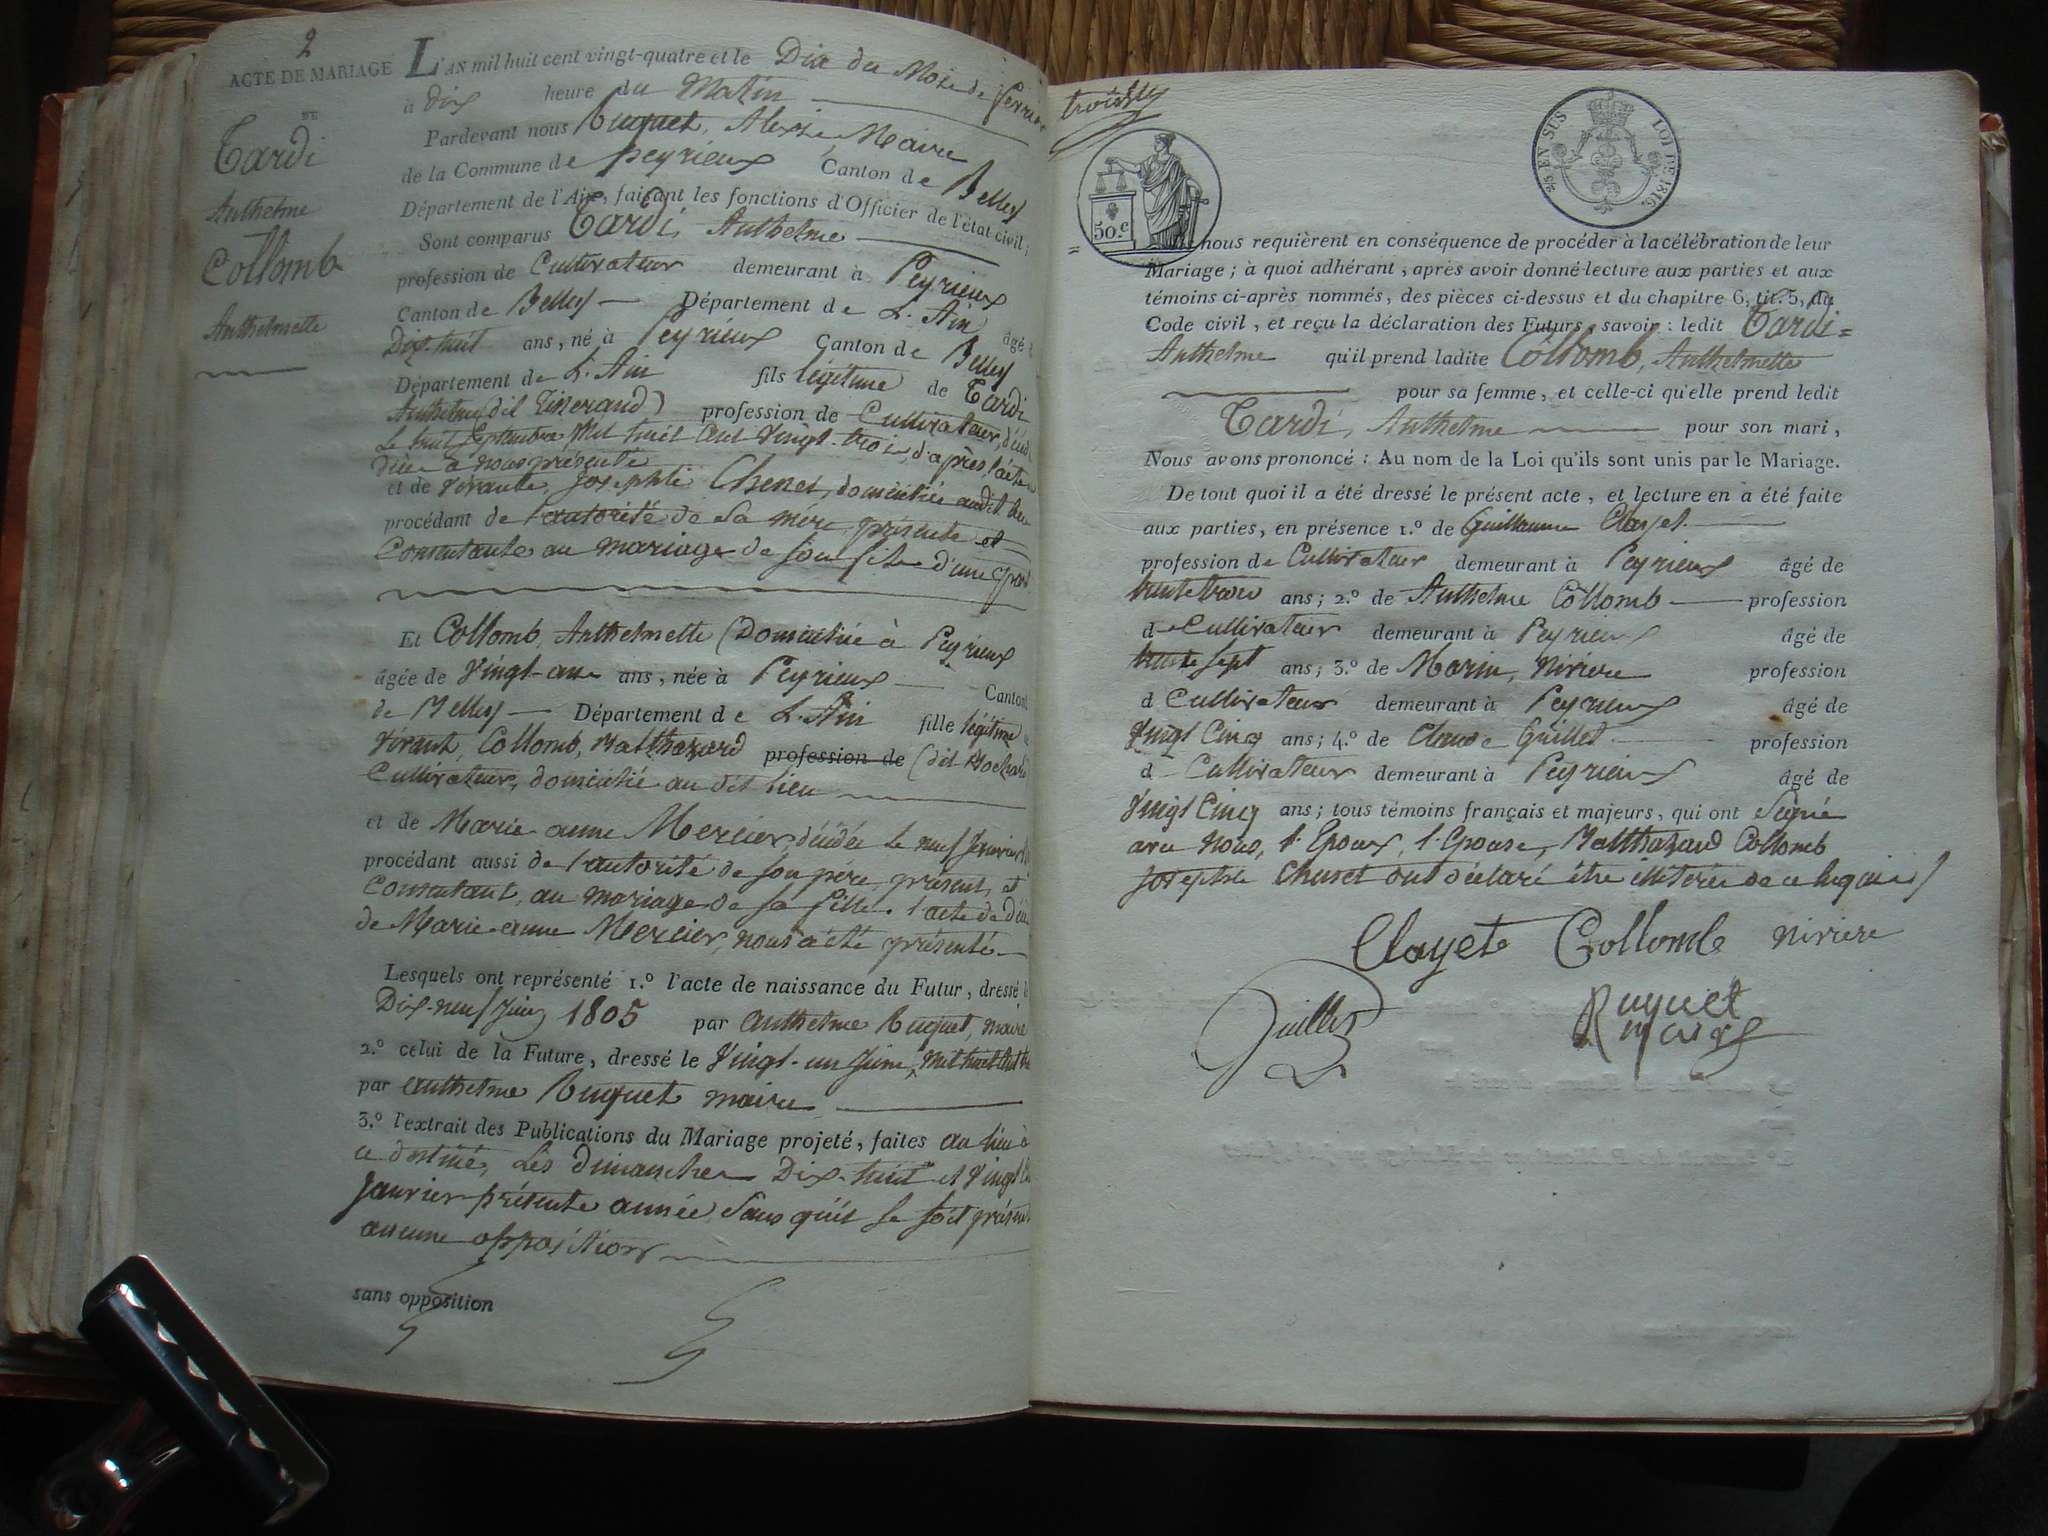 2
ACTE DE MARIAGE
DE
Tardi
Anthelme
Collomb
Anthelmette
L'AN mil huit cent vingt-quatre et le Dix du Mois de fevrier
à dix heure du Matin
Pardevant nous Ruquet, Alexis, Maire
de la Commune de peyrieux Canton de Belley
Département de l'Ain, faisant les fonctions d'Officier de l'état civil;
Sont comparus Tardi, Anthelme
profession de Cultivateur demeurant à Peyrieux
Canton de Belley Département de L'Ain âgé
Dix-huit ans, né à Peyrieux Canton de Belley
Département de L'Ain fils légitime de Tardi
Anthelme (dit ) profession de Cultivateur,
Le huit Septembre Mil huit Cent Vingt-trois, d'après l'acte
à nous présenté
et de vivante, Josephte Chenet, domiciliée audit lieu
procédant de l'autorité de sa mère présente et
Consentante au mariage de son fils d'une part
Et Collomb, Anthelmette (Domiciliée à Peyrieux
âgée de Vingt-un ans, née à Peyrieux Canton
de Belley Département de L'Ain fille légitime
Vivant, Collomb, Balthazard profession de (dit
Cultivateur, domicilié au dit lieu
et de Marie anne Mercier, décédée le neuf
procédant aussi de l'autorité de son père, présent, et
Consentant, au mariage de sa fille. l'acte de
de Marie anne Mercier, nous a été présenté
Lesquels ont représenté 1.º l'acte de naissance du Futur, dressé le
Dix-neuf Juin 1805 par anthelme Ruquet, maire
2.º celui de la Future, dressé le Vingt-un Mil huit Cent
par anthelme Ruquet maire
3.º l'extrait des Publications du Mariage projeté, faites au lieu à
ce destiné, Les dimanches Dix-huit et Vingt
Janvier présente année, Sans qu'il se soit
aucune opposition
sans opposition
troisième
50.c
25 EN SUS LOI DE 1816.
nous requièrent en conséquence de procéder à la célébration de leur
Mariage; à quoi adhérant, après avoir donné lecture aux parties et aux
témoins ci-après nommés, des pièces ci-dessus et du chapitre 6, tit. 5, du
Code civil, et reçu la déclaration des Futurs, savoir: ledit Tardi=
Anthelme qu'il prend ladite Collomb, Anthelmette
pour sa femme, et celle-ci qu'elle prend ledit
Tardi, Anthelme pour son mari,
Nous avons prononcé: Au nom de la Loi qu'ils sont unis par le Mariage.
De tout quoi il a été dressé le présent acte, et lecture en a été faite
aux parties, en présence 1.º de Guillaume Clayet
profession de Cultivateur demeurant à Peyrieux âgé de
trente trois ans; 2.º de Anthelme Collomb profession
de Cultivateur demeurant à Peyrieux âgé de
trente sept ans; 3.º de Marin, Nivière profession
d Cultivateur demeurant à Peyrieux âgé de
Vingt Cinq ans; 4.º de Claude Guillet profession
d Cultivateur demeurant à Peyrieux âgé de
Vingt Cinq ans; tous témoins français et majeurs, qui ont Signé
avec nous, l'Epoux, l'Epouse, Balthazard Collomb
Josephte Chenet ont déclaré être illiterés de ce requis
Clayet Collomb Niviere
Guillet Ruquet
maire